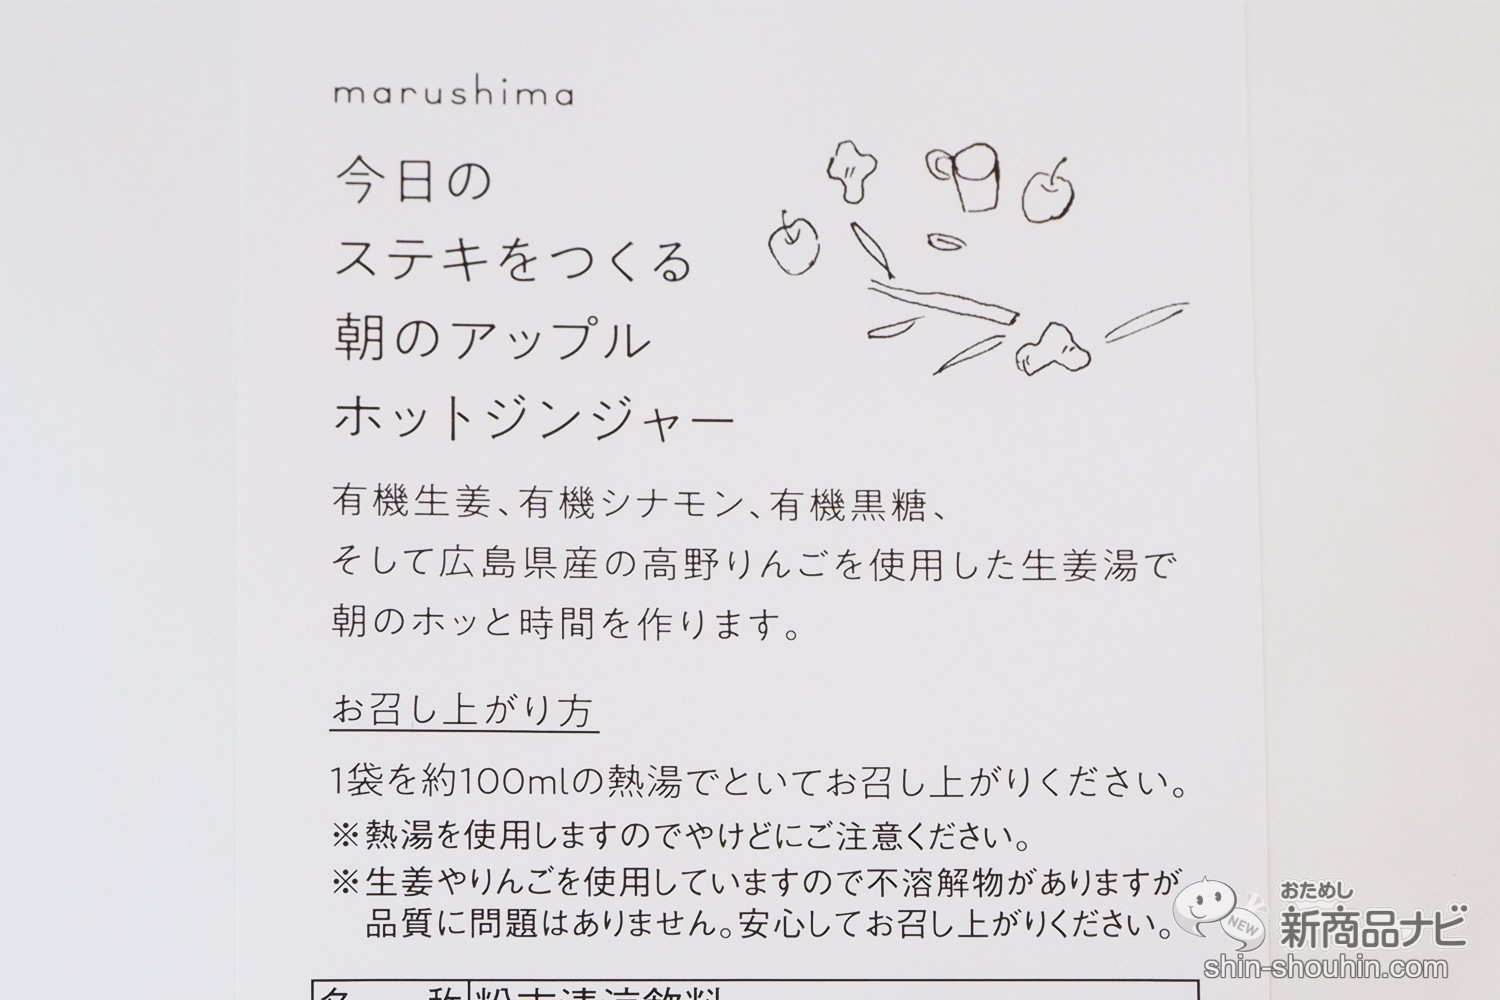 marushima
今日の
ステキをつくる
朝のアップル
ホットジンジャー
有機生姜、有機シナモン、有機黒糖、
そして広島県産の高野りんごを使用した生姜湯で
朝のホッと時間を作ります。
お召し上がり方
1袋を約100mlの熱湯でといてお召し上がりください。
※熱湯を使用しますのでやけどにご注意ください。
※生姜やりんごを使用していますので不溶解物がありますが
品質に問題はありません。安心してお召し上がりください。
名 称 粉末清涼飲料
NEW
おためし
新商品ナビ
shin-shouhin.com